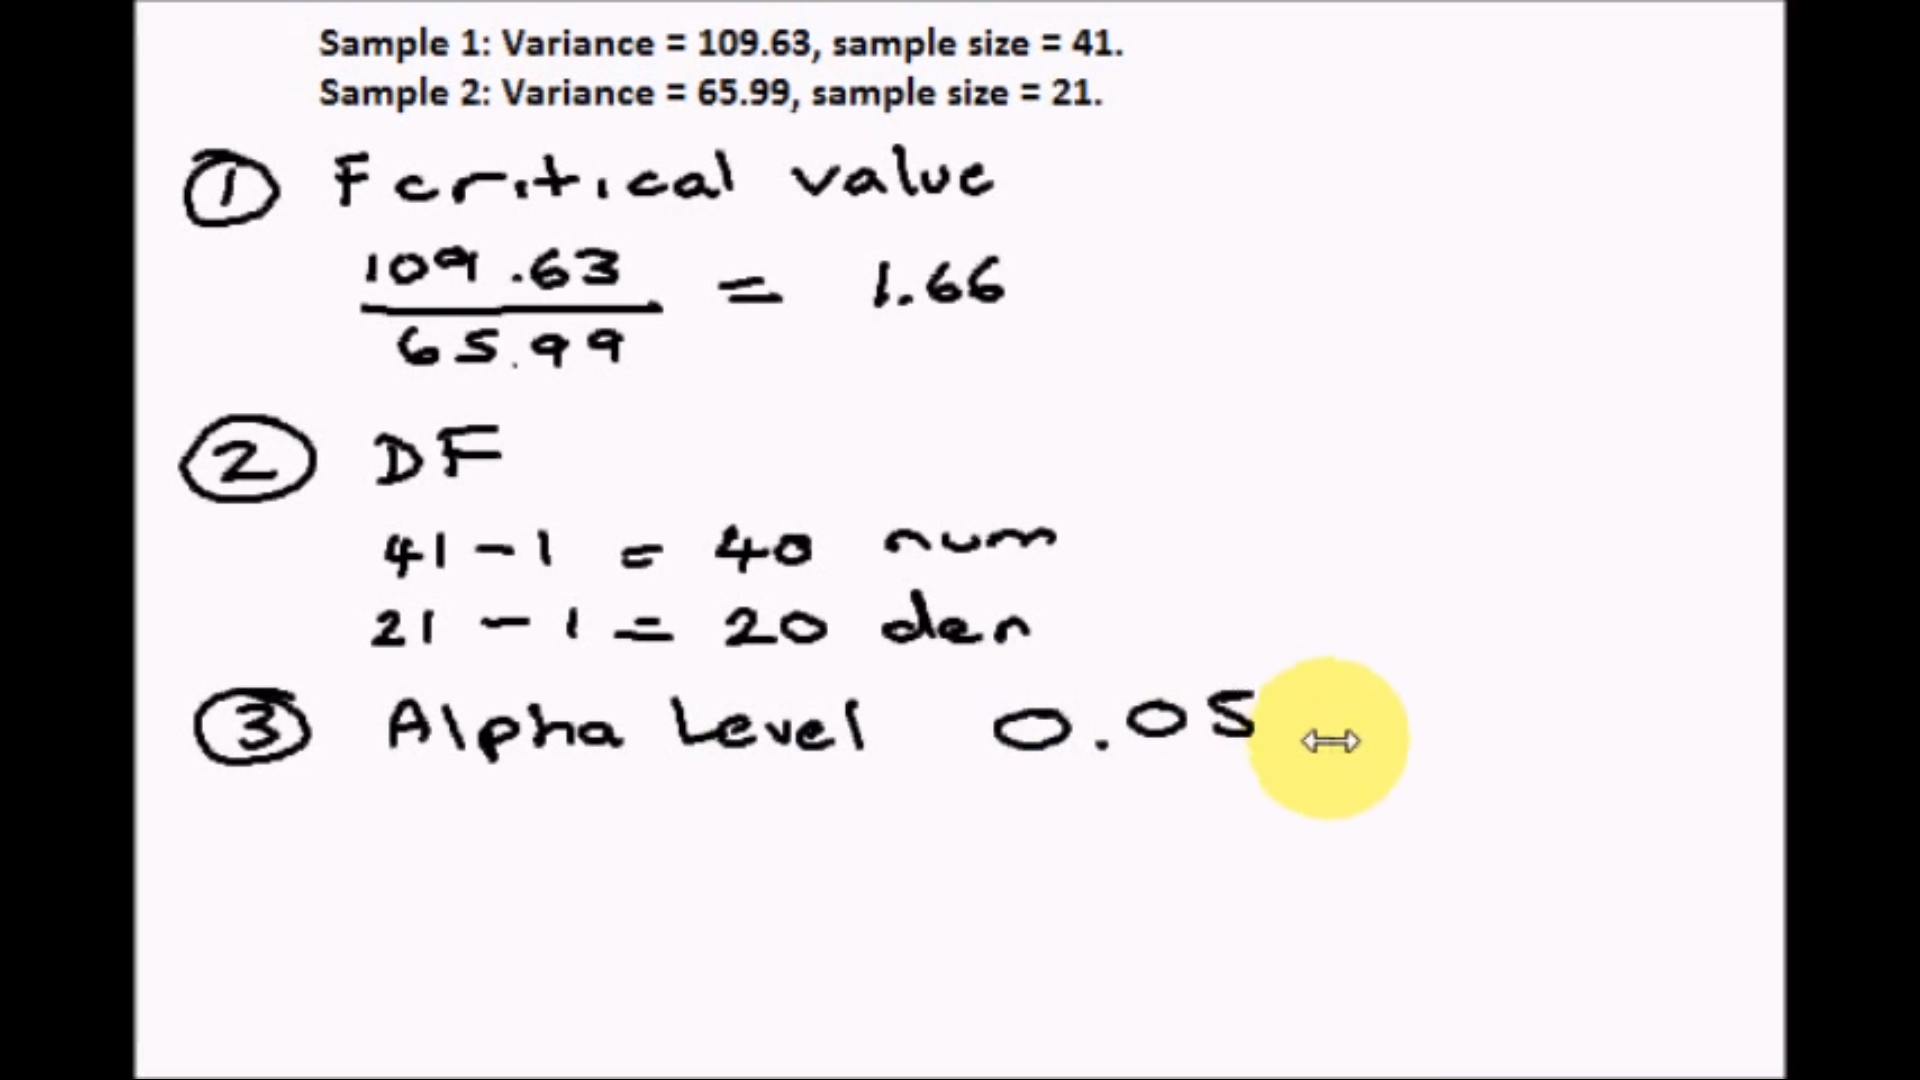 Sample 1: Variance = 109.63, sample size = 41.
Sample 2: Variance = 65.99, sample size = 21.
① F critical value
109.63
= 1.66
65.99
② DF
41 - 1 = 40 num
21 - 1 = 20 den
③ Alpha Level 0.05